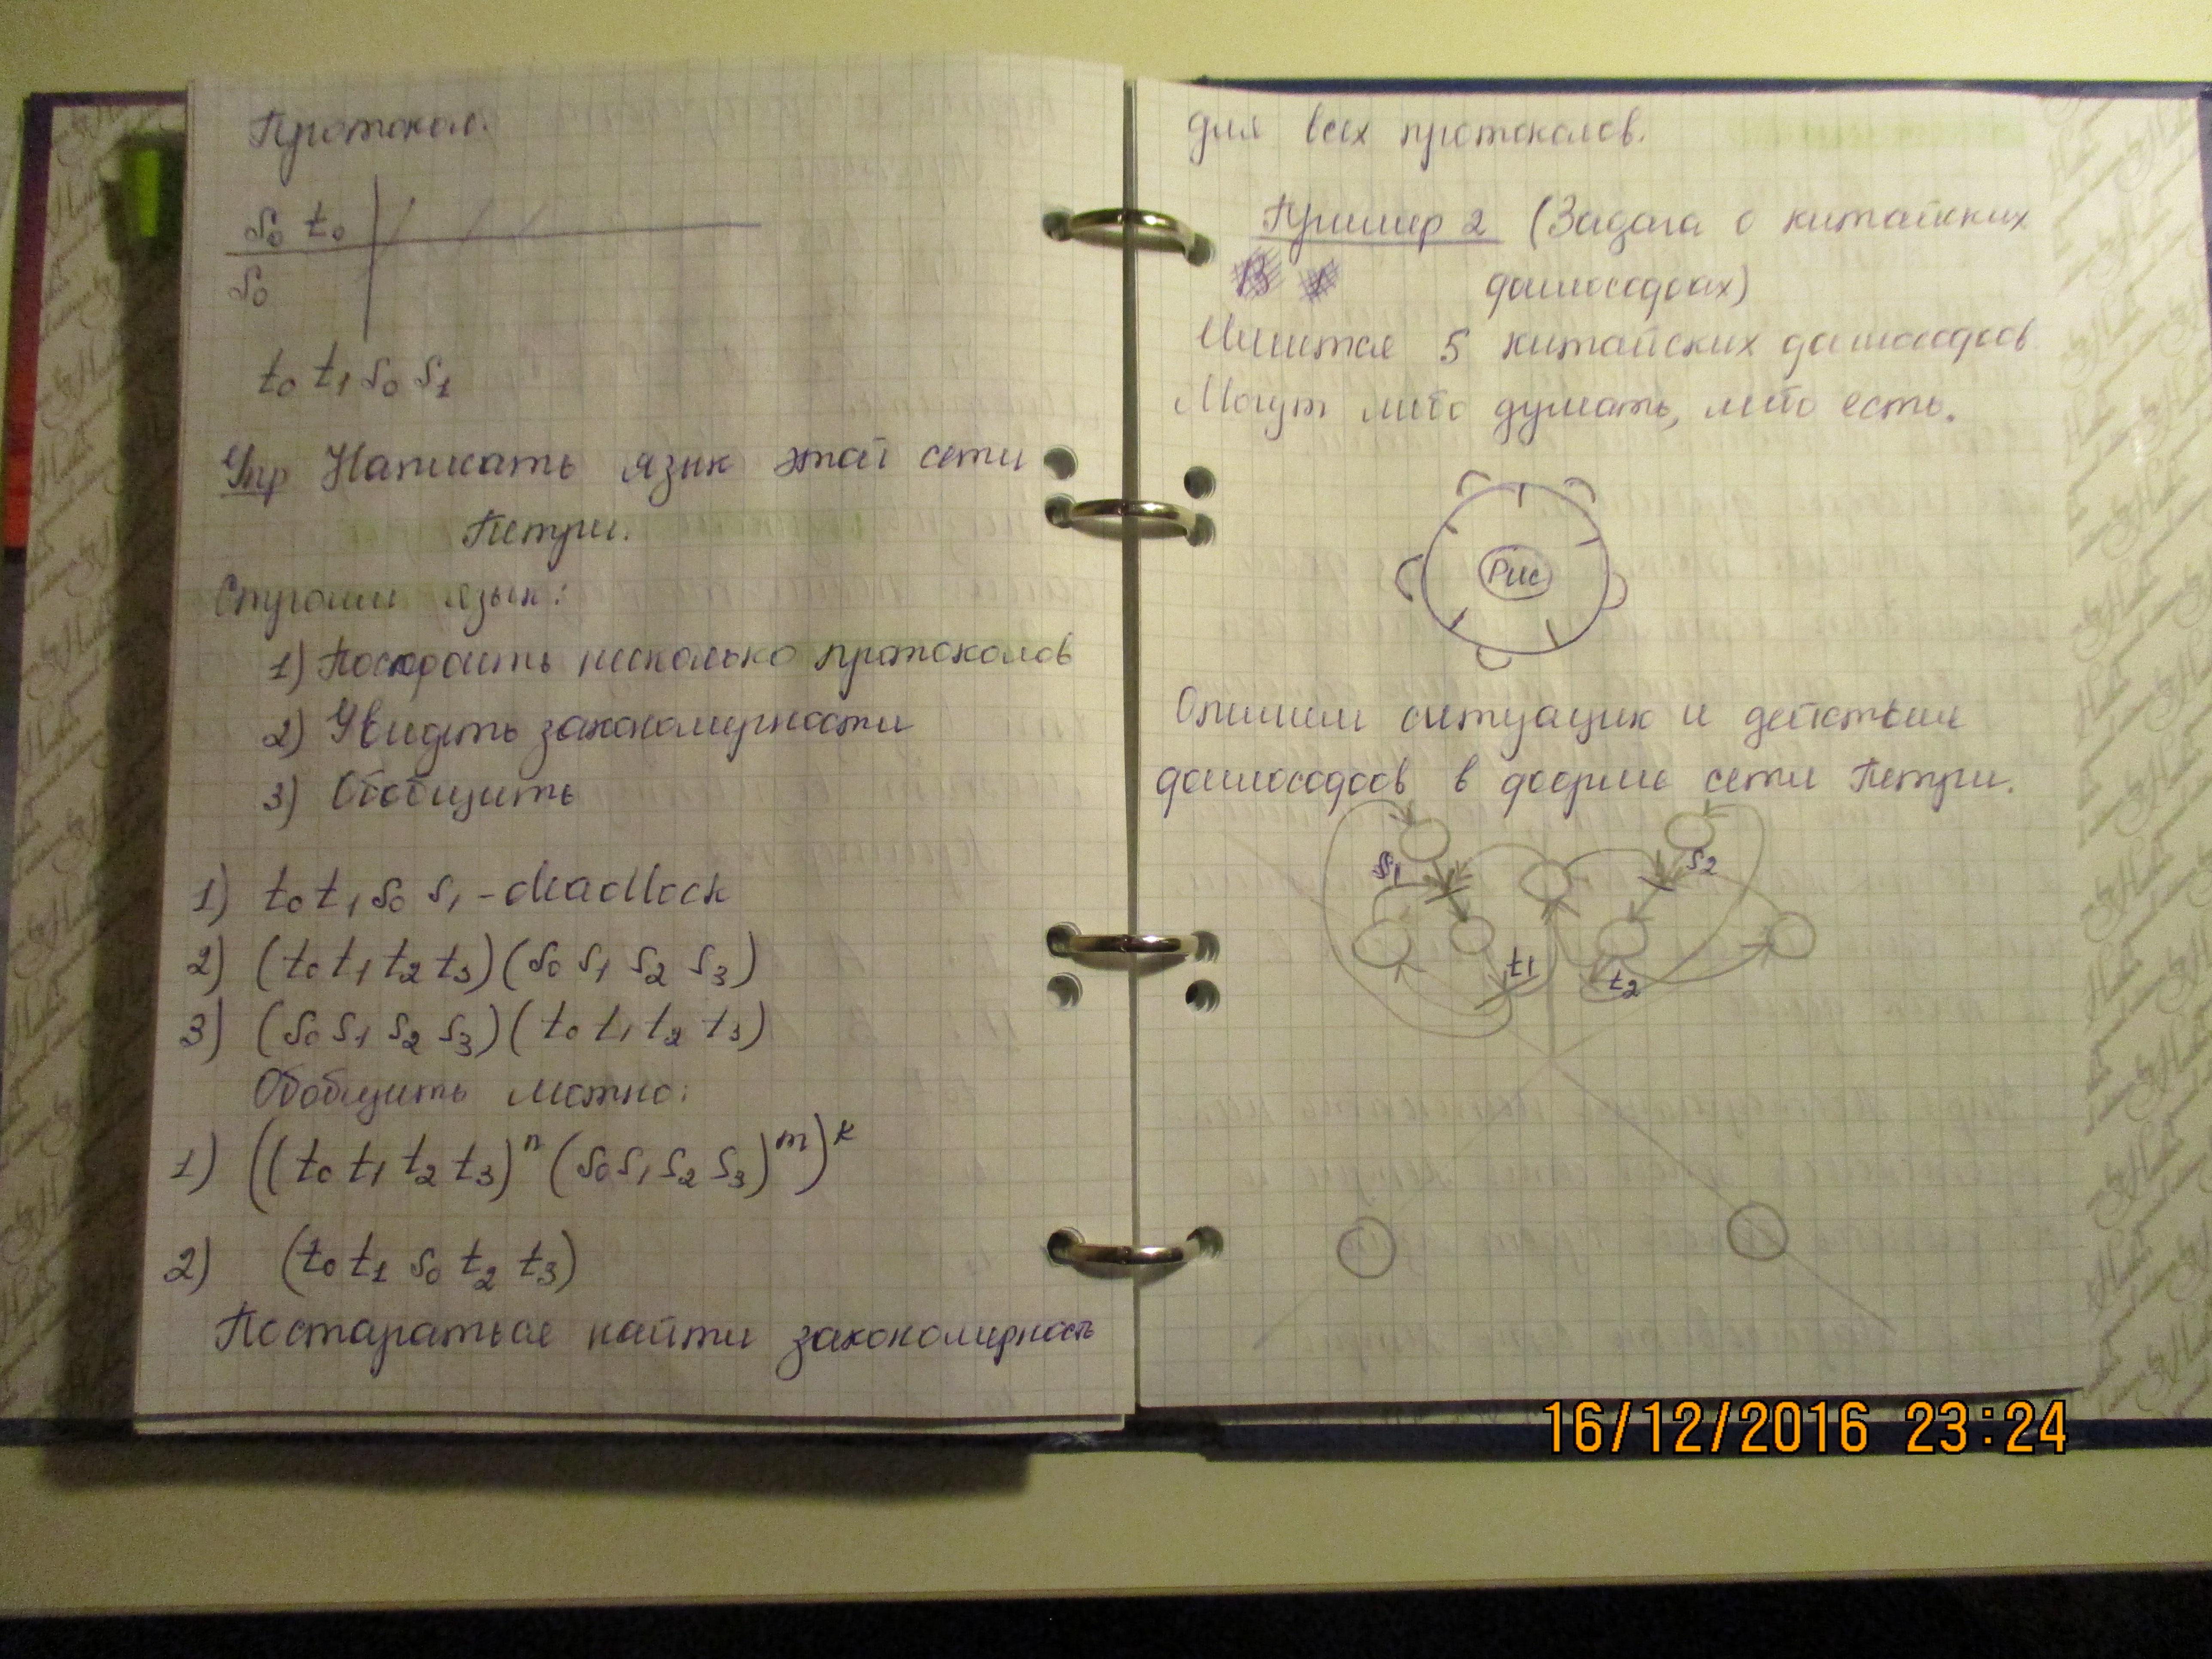 Протокол.
S₀ t₀
S₀
t₀ t₁ S₀ S₁
Упр Написать язык этой сети
Петри.
Строим язык:
1) Построить несколько протоколов
2) Увидеть закономерности
3) Обобщить
1) t₀ t₁ S₀ S₁ - deadlock
2) (t₀ t₁ t₂ t₃)(S₀ S₁ S₂ S₃)
3) (S₀ S₁ S₂ S₃)(t₀ t₁ t₂ t₃)
Обобщить можно:
1) ((t₀ t₁ t₂ t₃)ⁿ (S₀ S₁ S₂ S₃)ᵐ)ᵏ
2) (t₀ t₁ S₀ t₂ t₃)
Постараться найти закономерность
для всех протоколов.
Пример 2 (Задача о китайских
философах)
Имится 5 китайских философов
Могут либо думать, либо есть.
Рис
Опишем ситуацию и действия
философов в форме сети Петри.
S₁ S₂
t₁ t₂
16/12/2016 23:24